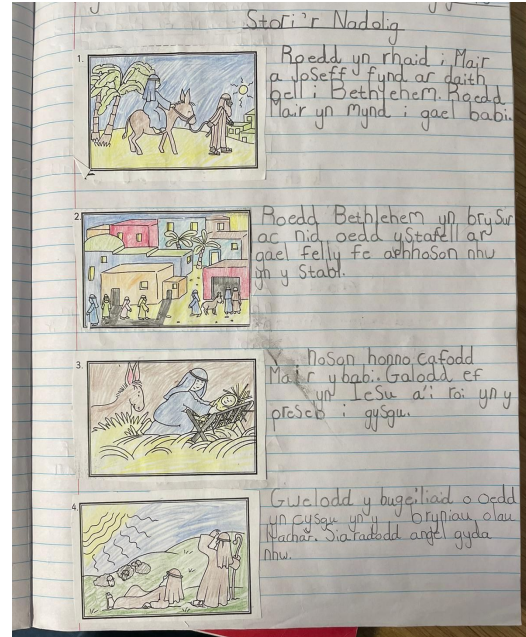 Stori'r Nadolig
1.
Roedd yn rhaid i Mair
a Joseff fynd ar daith
bell i Bethlehem. Roedd
Mair yn mynd i gael babi.
2.
Roedd Bethlehem yn brysur
ac nid oedd ystafell ar
gael felly fe arhhoson nhw
yn y Stabl.
3.
Y noson honno cafodd
Mair y babi. Galodd ef
yn Iesu a'i roi yn y
preseb i gysgu.
4.
Gwelodd y bugeiliaid o oedd
yn cysgu yn y bryniau olau
llachar. Siaradodd angel gyda
nhw.